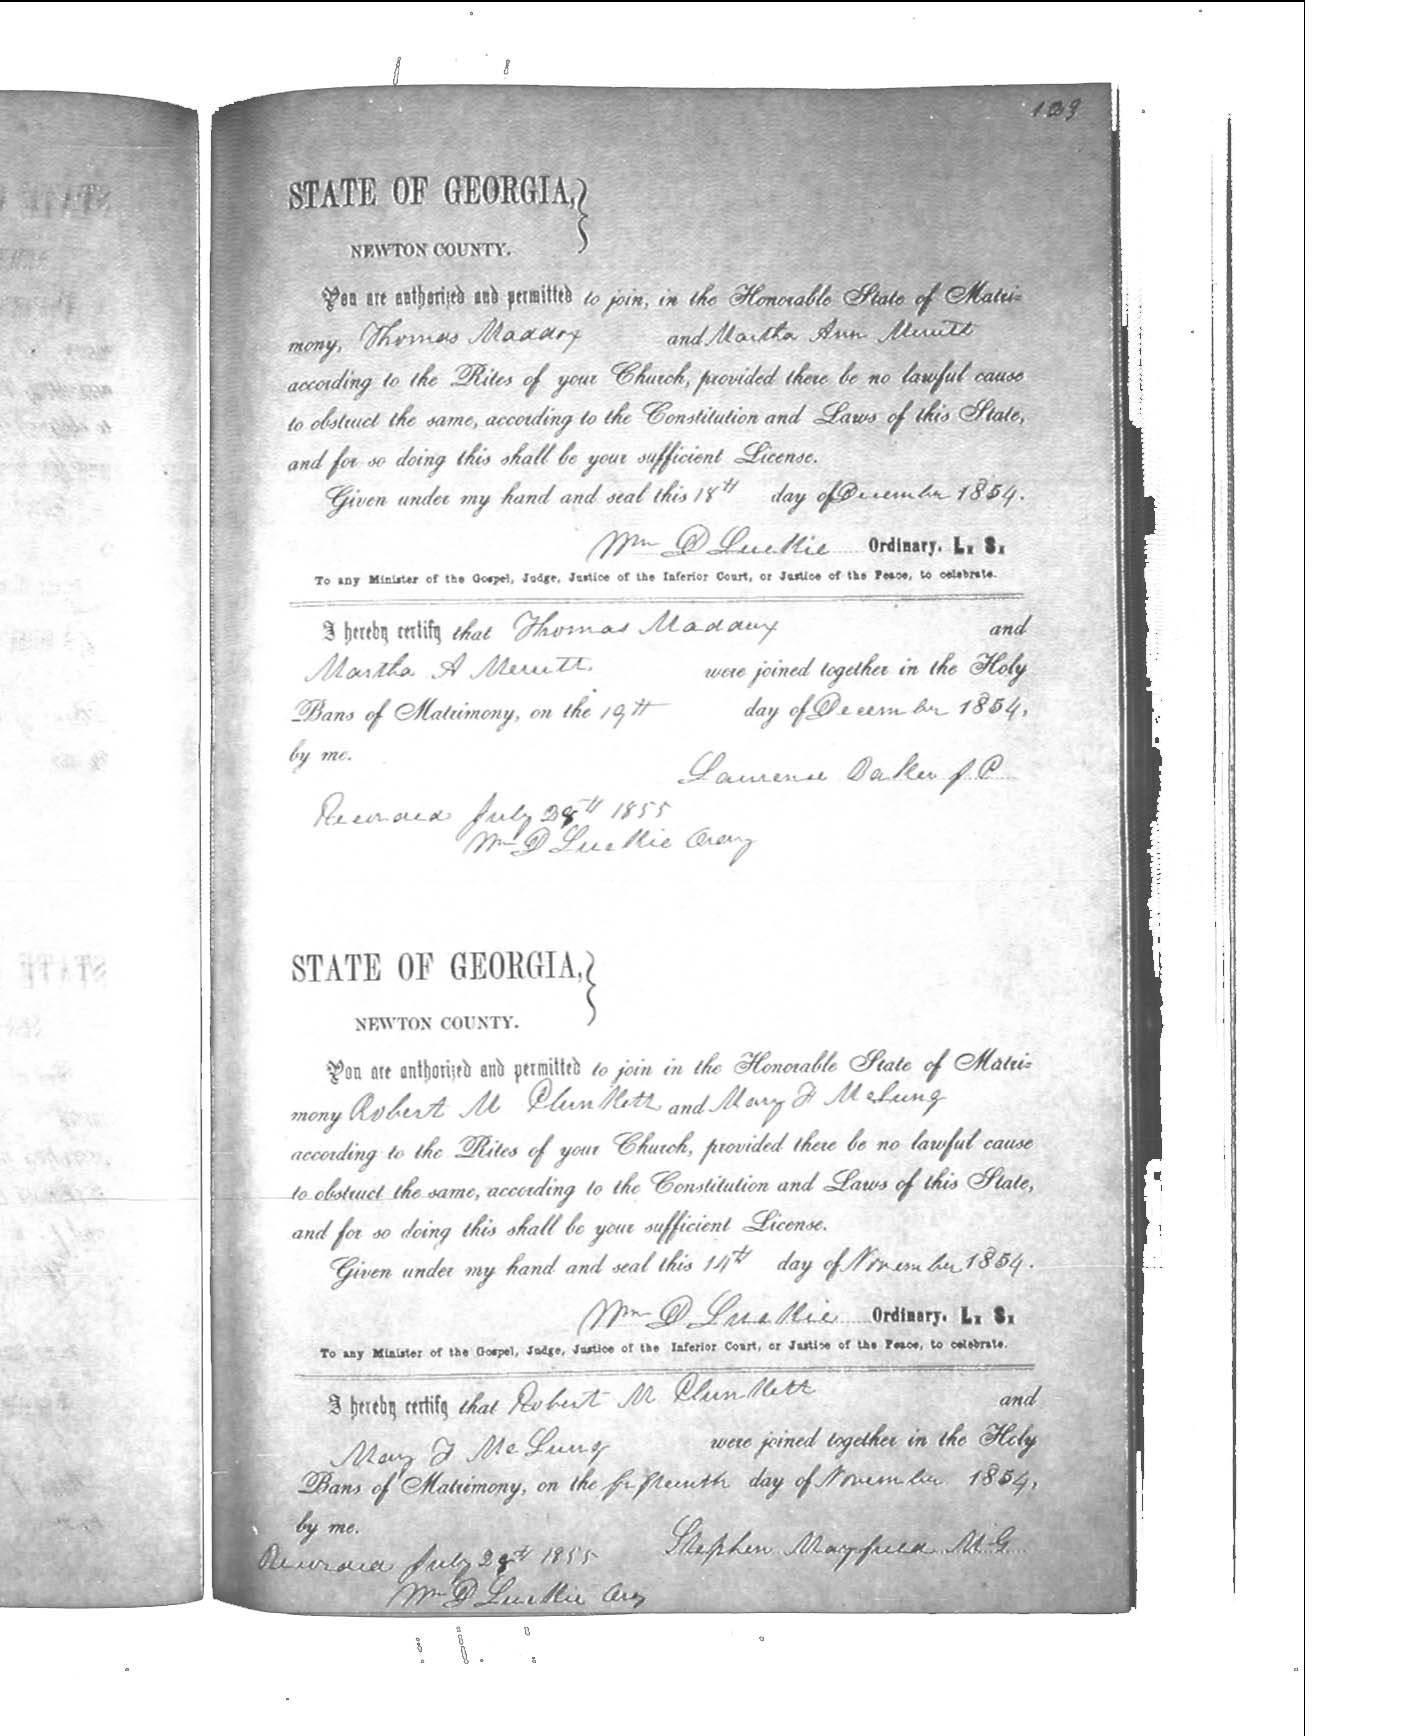 STATE OF GEORGIA,
NEWTON COUNTY.
You are authorized and permitted to join, in the Honorable State of Matri=
mony, Thomas Maddox and Martha Ann Merritt
according to the Rites of your Church, provided there be no lawful cause
to obstruct the same, according to the Constitution and Laws of this State,
and for so doing this shall be your sufficient License.
Given under my hand and seal this 18th day of December 1854.
Wm D Luckie Ordinary. L. S.
To any Minister of the Gospel, Judge, Justice of the Inferior Court, or Justice of the Peace, to celebrate.
I hereby certify that Thomas Maddux and
Martha A Merritt were joined together in the Holy
Bans of Matrimony, on the 19th day of December 1854,
by me.
Laurence Baker J P
Recorded July 28th 1855
Wm D Luckie Ordy
STATE OF GEORGIA,
NEWTON COUNTY.
You are authorized and permitted to join in the Honorable State of Matri=
mony Robert M Plunkett and Mary F McLung
according to the Rites of your Church, provided there be no lawful cause
to obstruct the same, according to the Constitution and Laws of this State,
and for so doing this shall be your sufficient License.
Given under my hand and seal this 14th day of November 1854.
Wm D Luckie Ordinary. L. S.
To any Minister of the Gospel, Judge, Justice of the Inferior Court, or Justice of the Peace, to celebrate.
I hereby certify that Robert M Plunkett and
Mary F McLung were joined together in the Holy
Bans of Matrimony, on the fifteenth day of November 1854,
by me.
Stephen Mayfield M G
Recorded July 28th 1855
Wm D Luckie Ordy